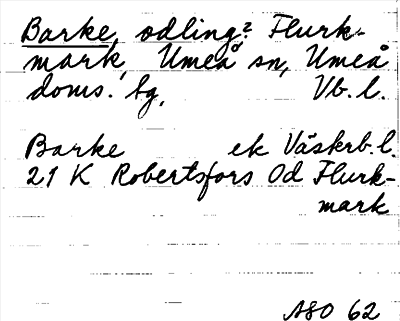 Barke, odling? Flurk-
mark, Umeå sn, Umeå
doms. sg, Vb. l.
Barke ek Västerb. l.
21 K Robertsfors Od Flurk-
mark
ASO 62